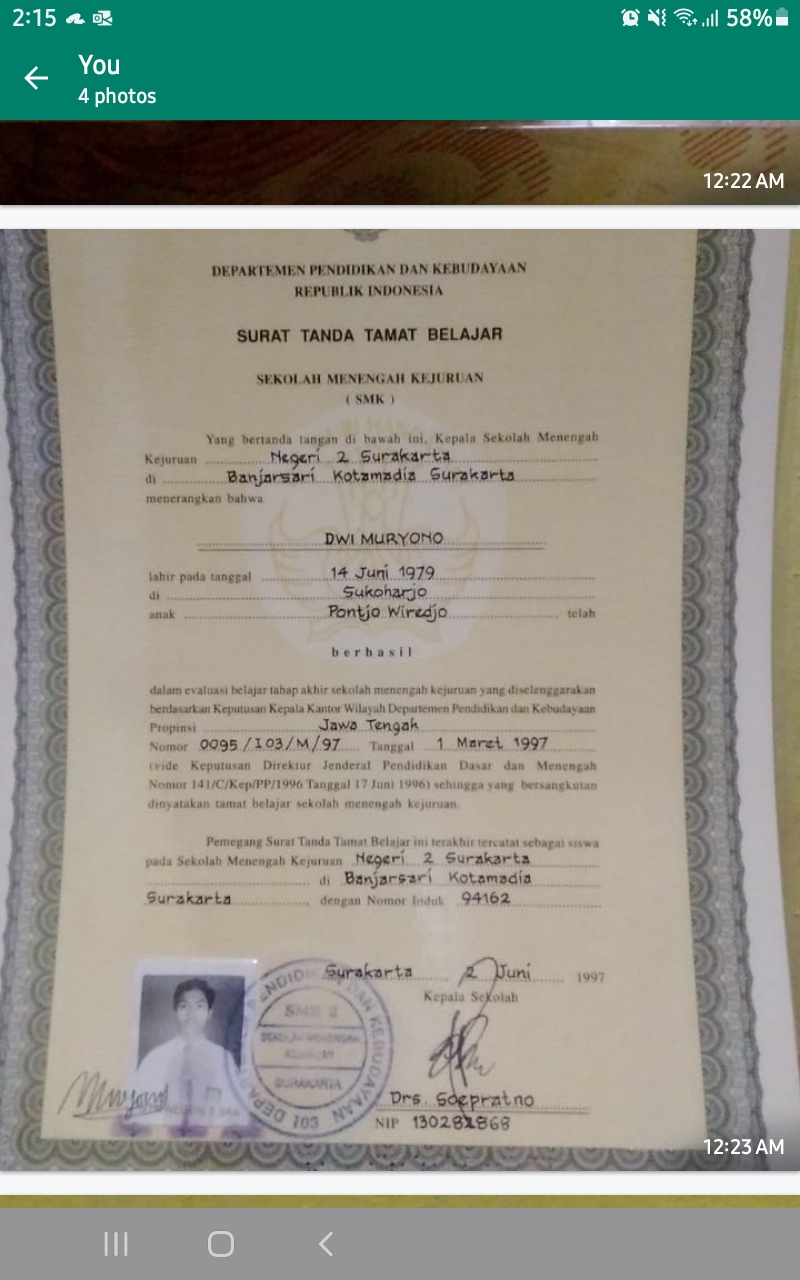 2:15
58%
You
4 photos
12:22 AM
DEPARTEMEN PENDIDIKAN DAN KEBUDAYAAN
REPUBLIK INDONESIA
SURAT TANDA TAMAT BELAJAR
SEKOLAH MENENGAH KEJURUAN
( SMK )
Yang bertanda tangan di bawah ini, Kepala Sekolah Menengah
Kejuruan Negeri 2 Surakarta
di Banjarsari Kotamadia Surakarta
menerangkan bahwa
DWI MURYONO
lahir pada tanggal 14 Juni 1979
di Sukoharjo
anak Pontjo Wiredjo telah
berhasil
dalam evaluasi belajar tahap akhir sekolah menengah kejuruan yang diselenggarakan
berdasarkan Keputusan Kepala Kantor Wilayah Departemen Pendidikan dan Kebudayaan
Propinsi Jawa Tengah
Nomor 0095/I03/M/97 Tanggal 1 Maret 1997
(vide Keputusan Direktur Jenderal Pendidikan Dasar dan Menengah
Nomor 141/C/Kep/PP/1996 Tanggal 17 Juni 1996) sehingga yang bersangkutan
dinyatakan tamat belajar sekolah menengah kejuruan.
Pemegang Surat Tanda Tamat Belajar ini terakhir tercatat sebagai siswa
pada Sekolah Menengah Kejuruan Negeri 2 Surakarta
di Banjarsari Kotamadia
Surakarta, dengan Nomor Induk 94162
Surakarta, 2 Juni 1997
Kepala Sekolah
SMK 2
SEKOLAH MENENGAH
KEJURUAN
SURAKARTA
DAN KEBUDAYAAN
103
Drs. Soepratno
NIP 130282868
12:23 AM